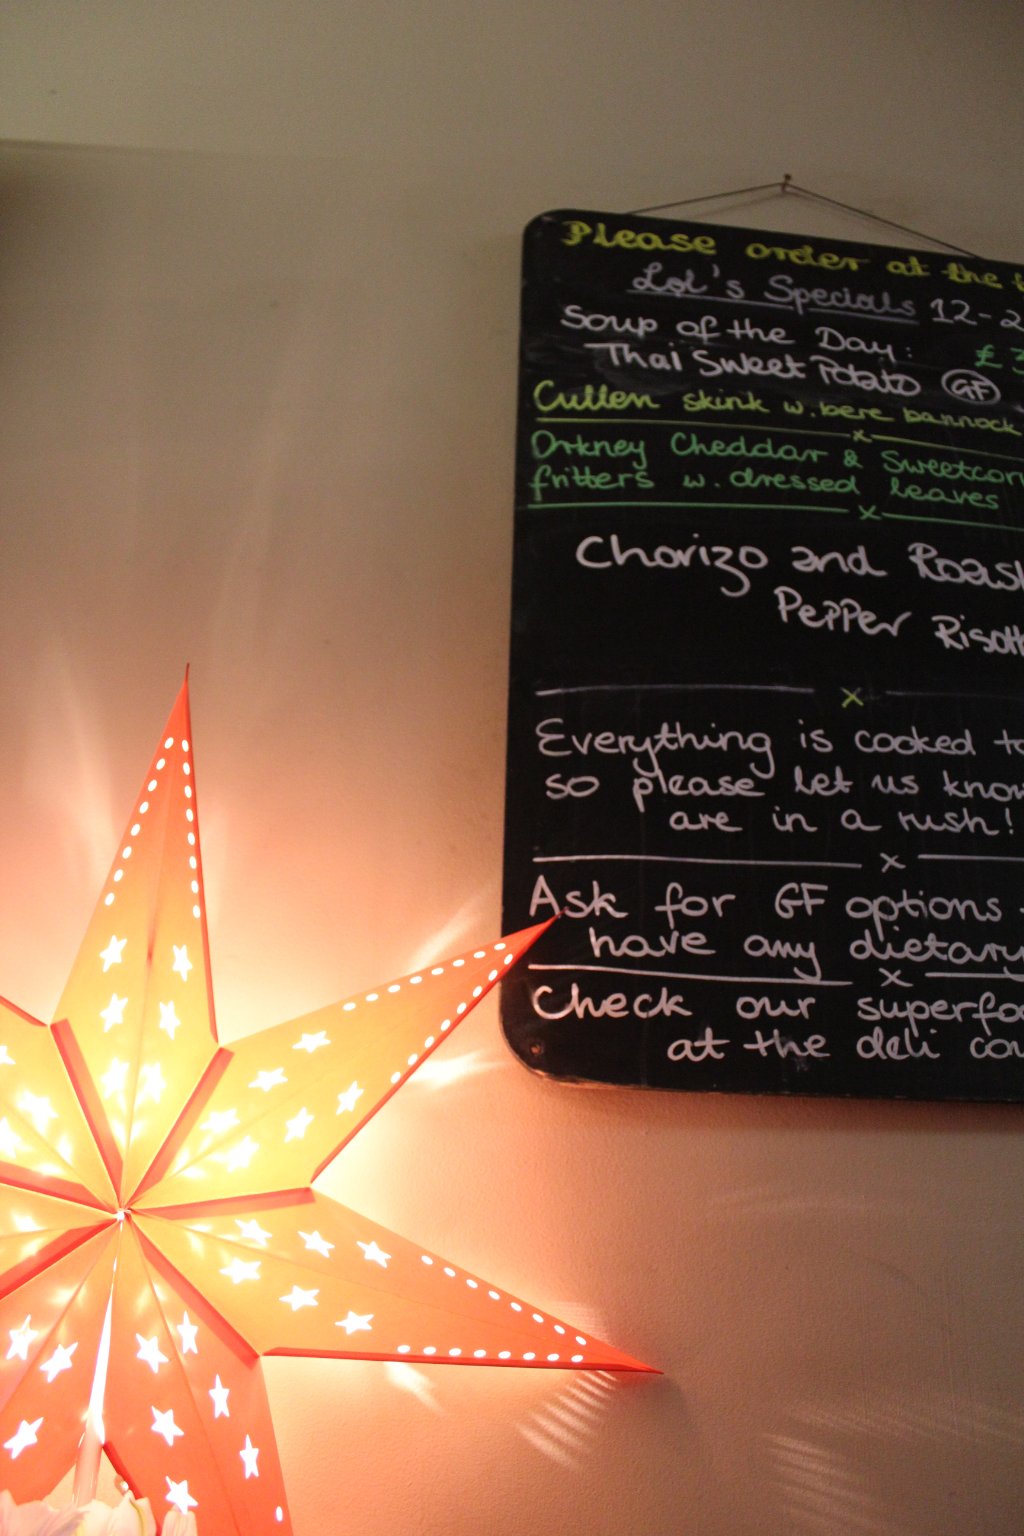 Please order at the
Lol's Specials 12-2
Soup of the Day: £3
Thai Sweet Potato GF
Cullen skink w. bere bannock
x
Orkney Cheddar & Sweetcorn
fritters w. dressed leaves
x
Chorizo and Roast
Pepper Risott
x
Everything is cooked to
so please let us know
are in a rush!
x
Ask for GF options
have any dietary
x
Check our superfoo
at the deli cou